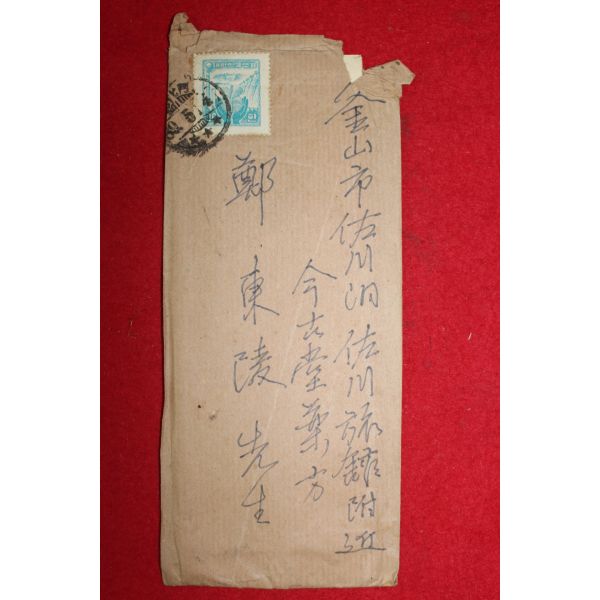 釜山市佐川洞佐川旅館附近
今古堂藥方
鄭東陵先生